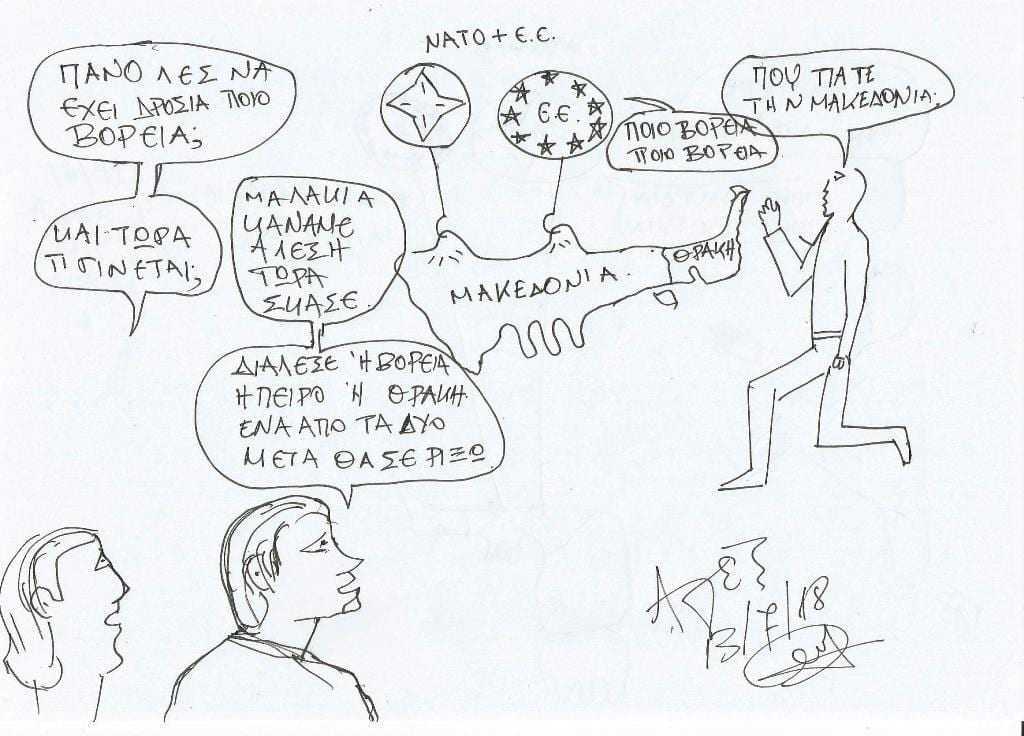 ΝΑΤΟ + Ε.Ε.
Ε.Ε.
ΠΑΝΟ ΛΕΣ ΝΑ
ΕΧΕΙ ΔΡΟΣΙΑ ΠΟΙΟ
ΒΟΡΕΙΑ;
ΚΑΙ ΤΩΡΑ
ΤΙ ΓΙΝΕΤΑΙ;
ΜΑΛΑΚΙΑ
ΚΑΝΑΜΕ
ΑΛΕΞΗ
ΤΩΡΑ
ΣΚΑΣΕ.
ΔΙΑΛΕΞΕ Ή ΒΟΡΕΙΑ
ΗΠΕΙΡΟ Ή ΘΡΑΚΗ
ΕΝΑ ΑΠΟ ΤΑ ΔΥΟ
ΜΕΤΑ ΘΑ ΣΕ ΡΙΞΩ
ΠΟΙΟ ΒΟΡΕΙΑ
ΠΟΙΟ ΒΟΡΕΙΑ
ΠΟΥ ΠΑΤΕ
ΤΗΝ ΜΑΚΕΔΟΝΙΑ.
ΜΑΚΕΔΟΝΙΑ.
ΘΡΑΚΗ
13/7/18